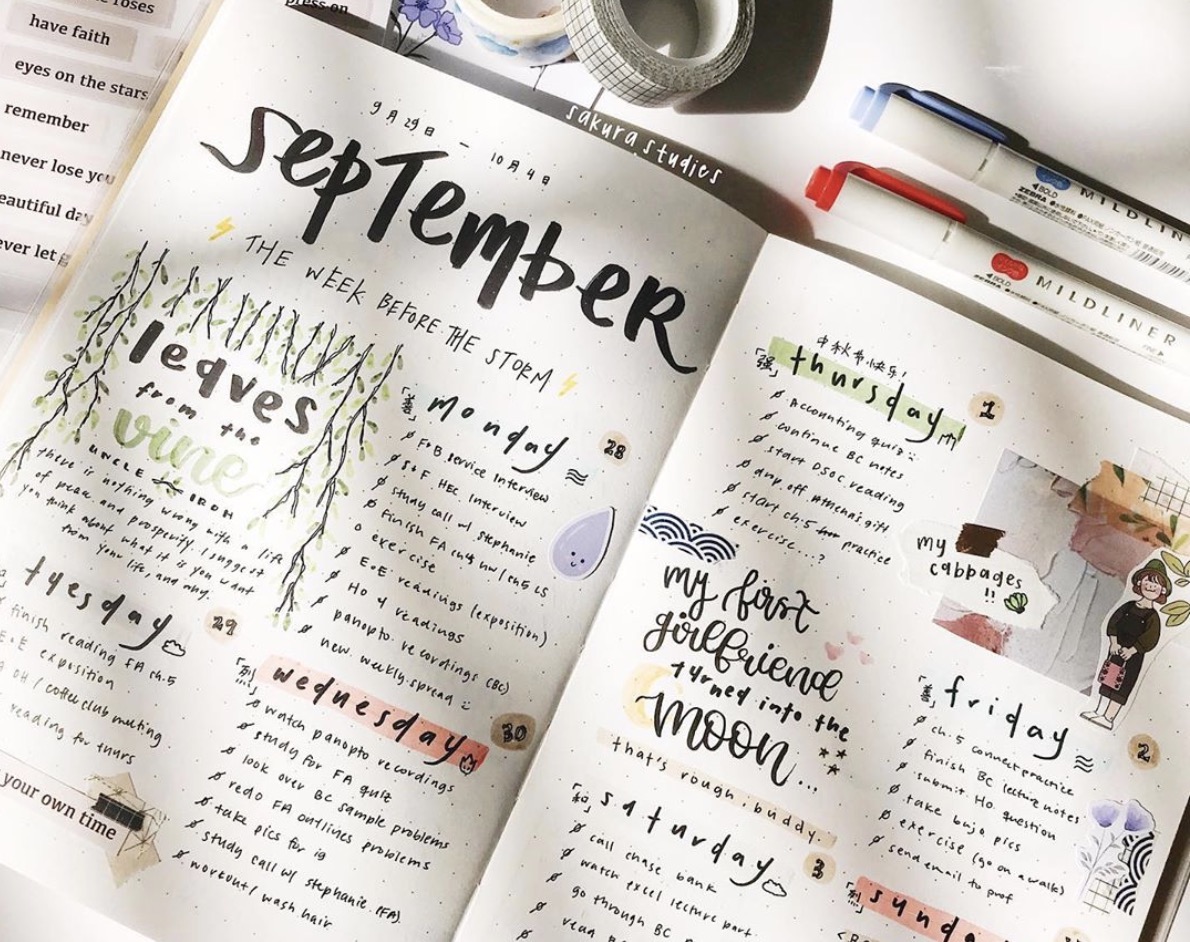 press on
roses
have faith
eyes on the stars
remember
never lose you
beautiful day
ever let g
9月29日 — 10月4日
sakura.studies
September
THE WEEK BEFORE THE STORM
leaves
from the
vine
UNCLE IROH
there is nothing wrong with a life
of peace and prosperity. I suggest
you think about what it is you want
from your life, and why.
「善」 monday 28
F+B service interview
S+F HEC Interview
study call w/ Stephanie
Finish FA ch4 hw / ch5 LS
exercise
E+E readings (exposition)
Ho 4 readings
panopto recordings (BC)
new weekly spread
tuesday 29
finish reading FA ch.5
E+E exposition
OH / coffee club meeting
reading for thurs
your own time
wednesday 30
watch panopto recordings
study for FA quiz
look over BC sample problems
redo FA outlines problems
take pics for ig
study call w/ stephanie (FA)
workout / wash hair
中秋节快乐!
「强」 thursday 1
Accounting quiz
continue BC notes
start DSOC reading
drop off Athena's gift
start ch.5 practice
exercise...?
my cabbages
!!
my first
girlfriend
turned into the
moon...
that's rough, buddy.
「善」 friday 2
ch. 5 connect practice
finish BC lecture notes
submit Ho question
take bujo pics
exercise (go on a walk)
send email to prof
「和」 saturday 3
call chase bank
watch excel lecture part
go through BC
read
sunda
BOLD
ZEBRA
MILDLIN
BOLD
ZEBRA
MILDLINER